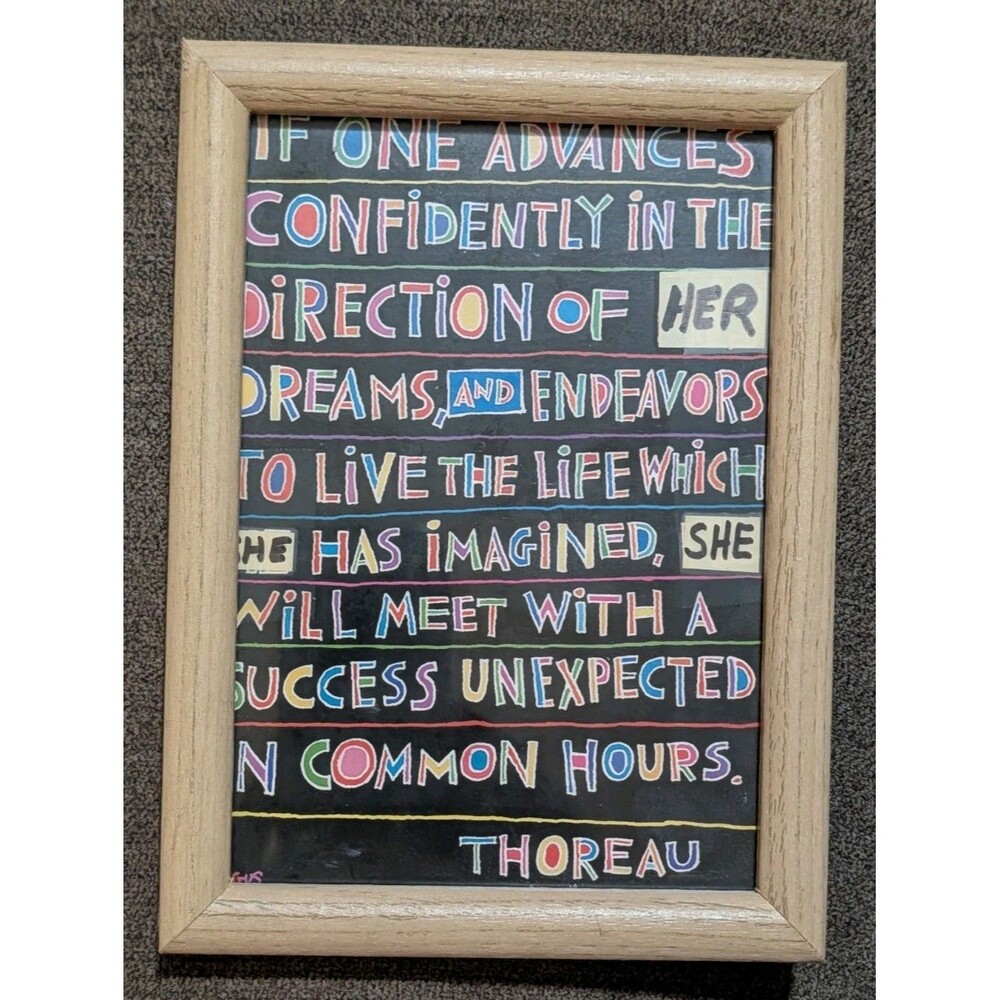 IF ONE ADVANCES
CONFiDENTLY iN THE
DiRECTiON OF HER
DREAMS, AND ENDEAVORS
TO LiVE THE LiFE WHiCH
SHE HAS iMAGiNED, SHE
WiLL MEET WiTH A
SUCCESS UNEXPECTED
N COMMON HOURS.
THOREAU